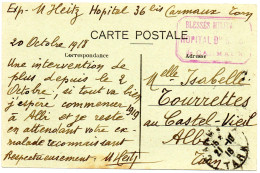 Exp- M Heitz Hopital 36 bis Carmaux Tarn
20 Octobre 1918
CARTE POSTALE
Correspondance
Adresse
BLESSÉS
HOPITAL B
Une intervention de
plus depuis le
Octobre, si tout va bien
j'espère commencer
à Albi et je reste
en attendant votre ex-
malade reconnaissant
Respectueusement M Heitz
Melle Isabelle
Tourrettes
au Castel-Vieil
Albi
Tarn
TARN